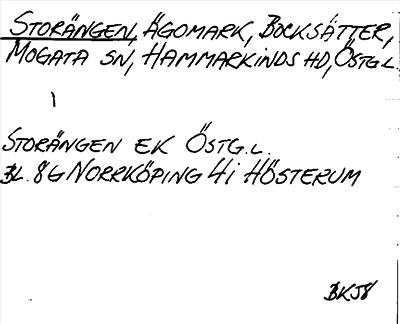 STORÄNGEN, ÄGOMARK, BOCKSÄTTER,
MOGATA SN, HAMMARKINDS HD, ÖSTG.L.
STORÄNGEN EK ÖSTG.L.
BL. 8G NORRKÖPING 4i HÖSTERUM
BKJ8